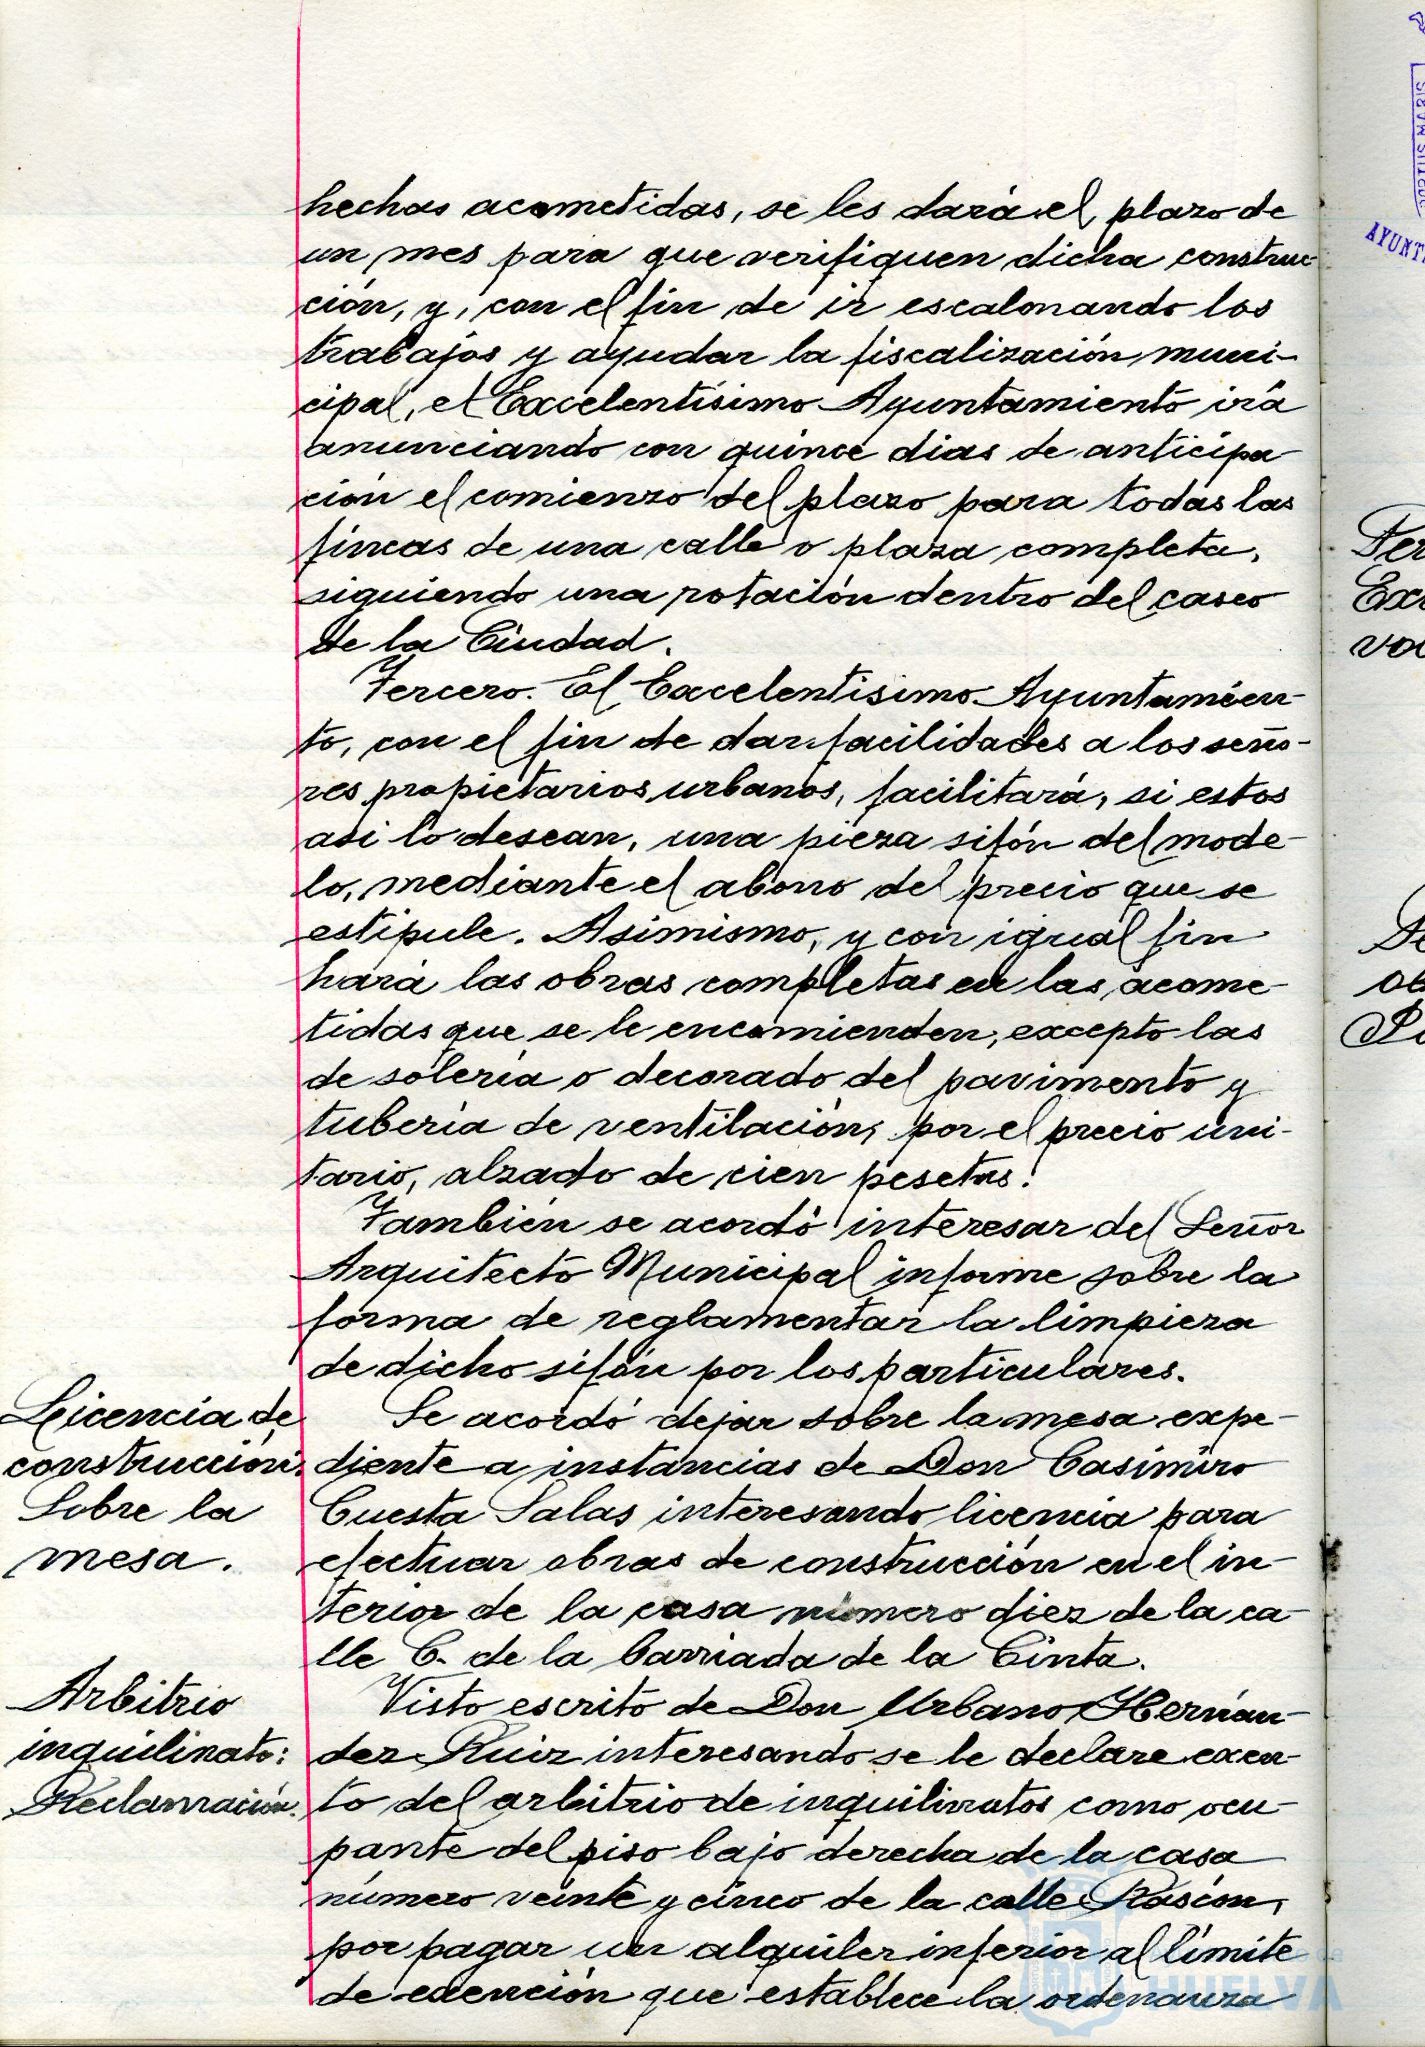 hechas acometidas, se les dará el plazo de
un mes para que verifiquen dicha construc-
ción, y, con el fin de ir escalonando los
trabajos y ayudar la fiscalización muni-
cipal, el Excelentísimo Ayuntamiento irá
anunciando con quince dias de anticipa
ción el comienzo del plazo para todas las
fincas de una calle o plaza completa,
siguiendo una rotación dentro del casco
de la Ciudad.
Tercero. El Excelentísimo Ayuntamien-
to, con el fin de dar facilidades a los seño-
res propietarios urbanos, facilitará, si estos
asi lo desean, una pieza sifón del mode-
lo, mediante el abono del precio que se
estipule. Asimismo, y con igual fin
hará las obras completas en las acome-
tidas que se le encomienden, excepto las
de solería o decorado del pavimento y
tubería de ventilación, por el precio uni-
tario, alzado de cien pesetas.
También se acordó interesar del Señor
Arquitecto Municipal informe sobre la
forma de reglamentar la limpieza
de dicho sifón por los particulares.
Licencia de
construcción.
Sobre la
mesa.
Se acordó dejar sobre la mesa expe-
diente a instancias de Don Casimiro
Cuesta Salas interesando licencia para
efectuar obras de construcción en el in-
terior de la casa número diez de la ca-
lle C. de la barriada de la Cinta.
Arbitrio
inquilinato:
Reclamación.
Visto escrito de Don Urbano Hernán-
dez Ruiz interesando se le declare exen-
to del arbitrio de inquilinatos como ocu-
pante del piso bajo derecha de la casa
número veinte y cinco de la calle Rascón,
por pagar un alquiler inferior al límite
de exención que establece la ordenanza
HUELVA
AYUNT
Ter
Ex
vo